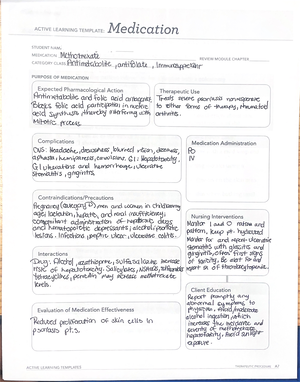 ACTIVE LEARNING TEMPLATE: Medication
STUDENT NAME
MEDICATION Methotrexate
REVIEW MODULE CHAPTER
CATEGORY CLASS Antimetabolite, antifolate, Immunosuppressant
PURPOSE OF MEDICATION
Expected Pharmacological Action
Antimetabolite and folic acid antagonist
Blocks folic acid participation in nucleic
acid synthesis, thereby interfering with
mitotic process.
Therapeutic Use
Treats severe psoriasis nonresponsive
to other forms of therapy, rheumatoid
arthritis.
Complications
CNS: Headache, drowsiness, blurred vision, dizziness,
aphasia, hemiparesis,
GI ulcerations and hemorrhage, ulcerative
stomatitis, gingivitis.
Medication Administration
PO
IV
Contraindications/Precautions
Pregnancy (category X), men and women in childbearing
age, lactation, hepatic, and renal insufficiency;
concomitant administration of hepatotoxic drugs
and hematopoietic depressants; alcohol,
lesions. Infections, peptic ulcer, ulcerative colitis.
Nursing Interventions
Monitor I and O ratio and
pattern, keep pt. hydrated
Monitor for and report ulcerative
stomatitis with glossitis and
gingivitis, often first signs
of toxicity. Be alert for and
report s/s of thrombocytopenia.
Interactions
Drug: Alcohol, azathioprine, sulfasalazine increase
risk of hepatotoxicity. Salicylates, NSAIDs,
tetracyclines, penicillin may increase methotrexate
levels.
Client Education
Report promptly any
abnormal symptoms to
physician. Avoid/moderate
alcohol ingestion, which
increases the incidence and
severity of methotrexate
hepatotoxicity. Avoid sunlight
exposure.
Evaluation of Medication Effectiveness
Reduced proliferation of skin cells in
psoriasis pts.
ACTIVE LEARNING TEMPLATES
THERAPEUTIC PROCEDURE A7